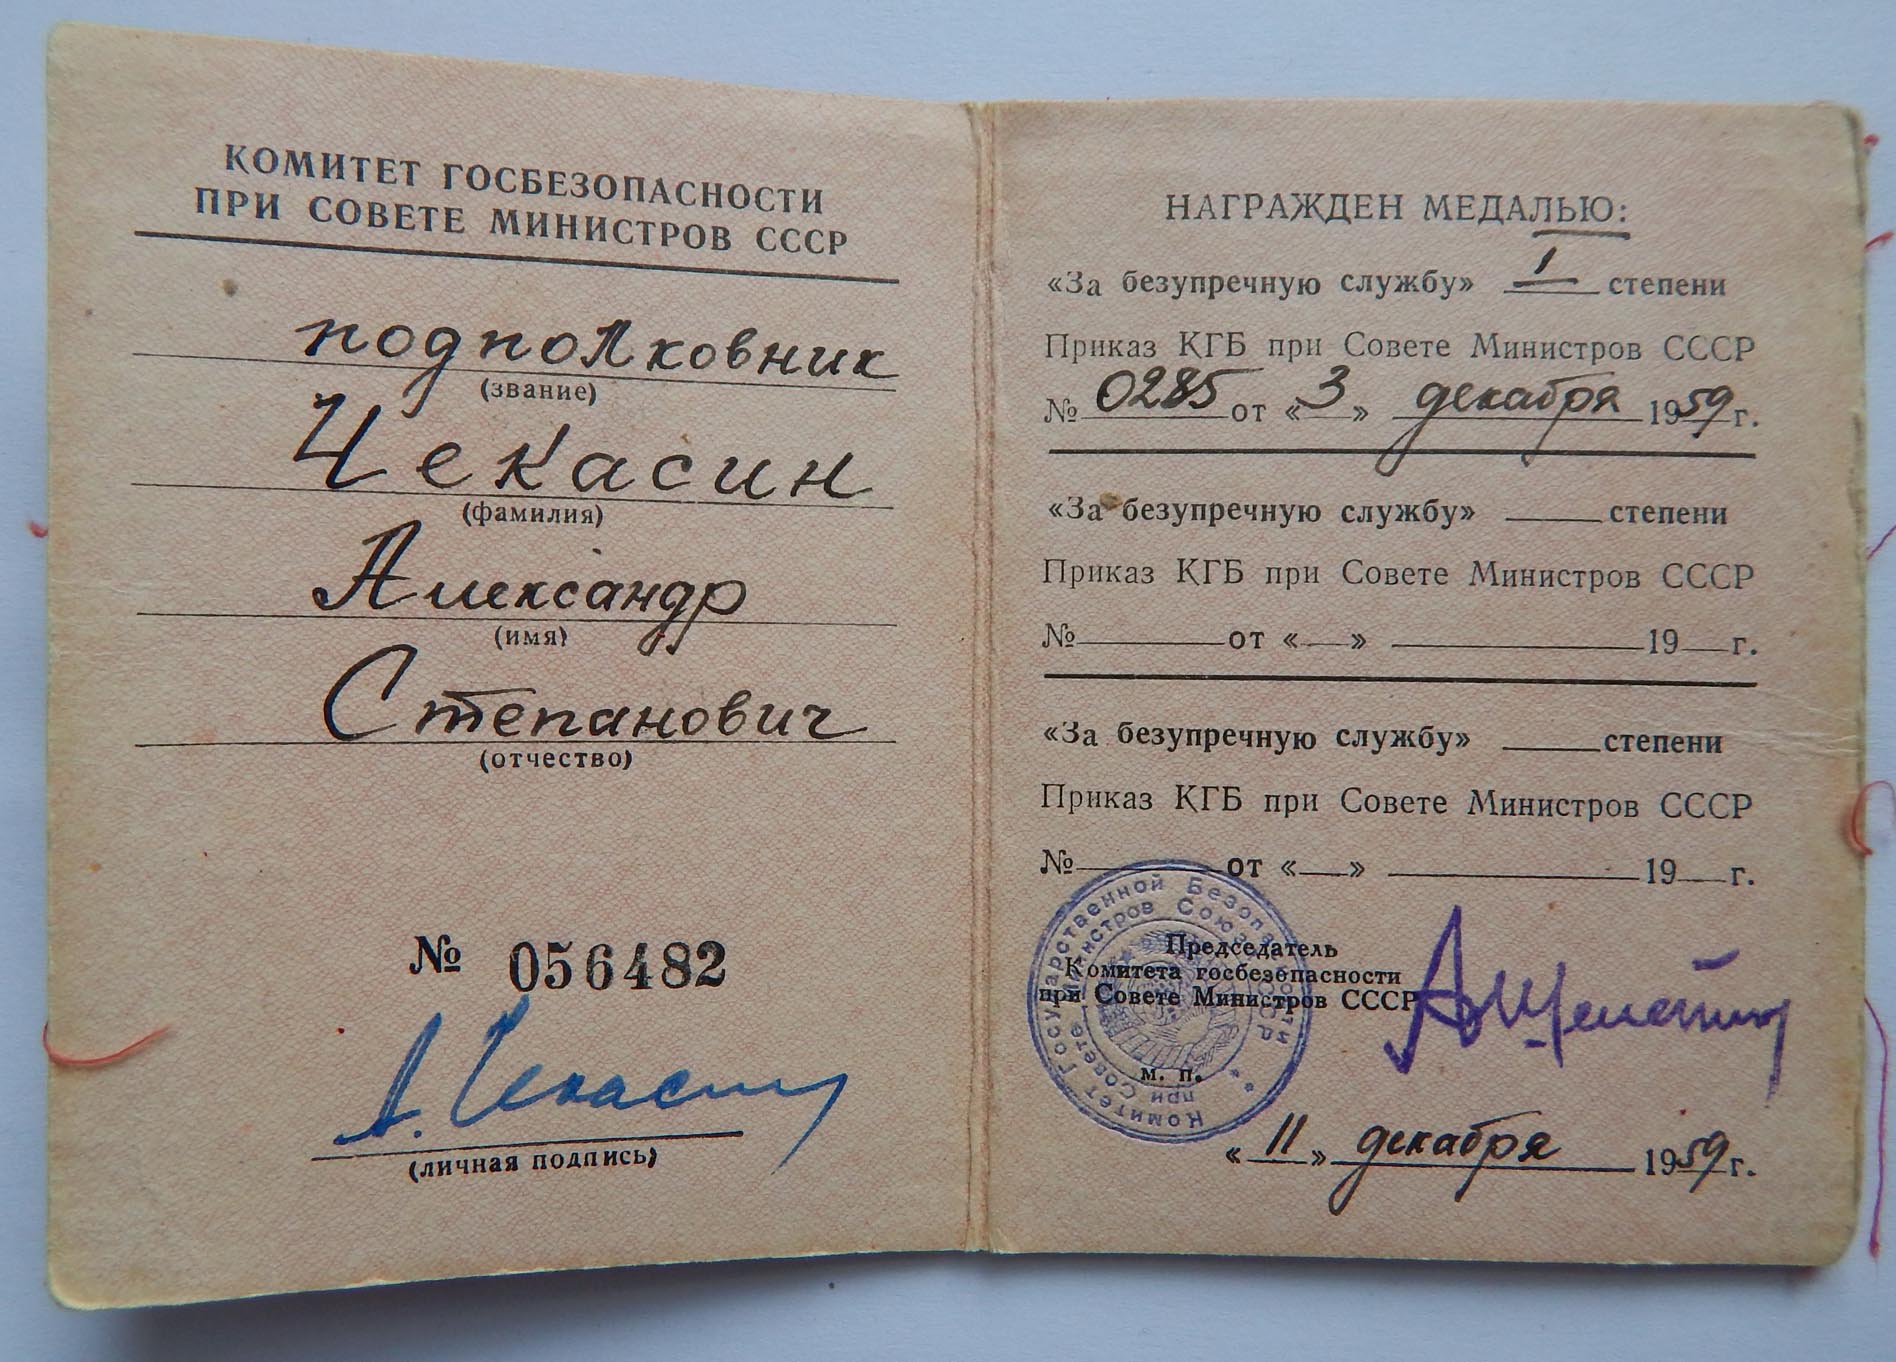 КОМИТЕТ ГОСБЕЗОПАСНОСТИ
ПРИ СОВЕТЕ МИНИСТРОВ СССР
подполковник
(звание)
Чекасин
(фамилия)
Александр
(имя)
Степанович
(отчество)
№ 056482
А. Чекасин
(личная подпись)
НАГРАЖДЕН МЕДАЛЬЮ:
«За безупречную службу» I степени
Приказ КГБ при Совете Министров СССР
№ 0285 от «3» декабря 1959 г.
«За безупречную службу» ____ степени
Приказ КГБ при Совете Министров СССР
№ ____ от «__» ____ 19__ г.
«За безупречную службу» ____ степени
Приказ КГБ при Совете Министров СССР
№ ____ от «__» ____ 19__ г.
Председатель
Комитета госбезопасности
при Совете Министров СССР
А. Шелепин
м. п.
Комитет Государственной Безопасности
при Совете Министров Союза ССР
«11» декабря 1959 г.